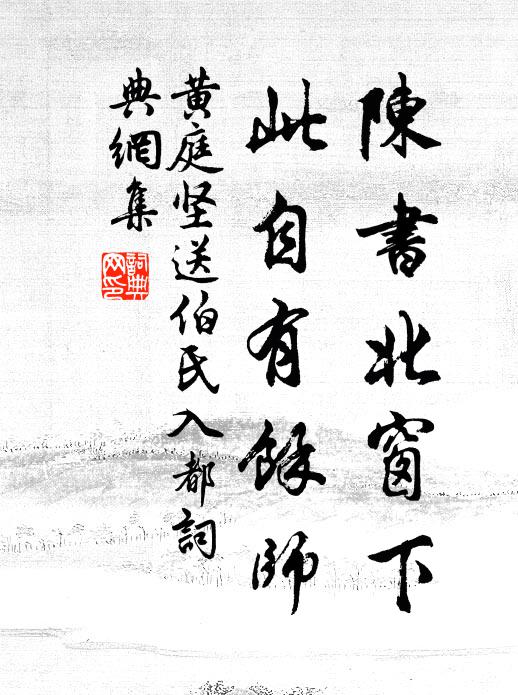 陳書北窗下
此自有餘師
黄庭坚送伯氏入都詞
典網集
詞典
网印